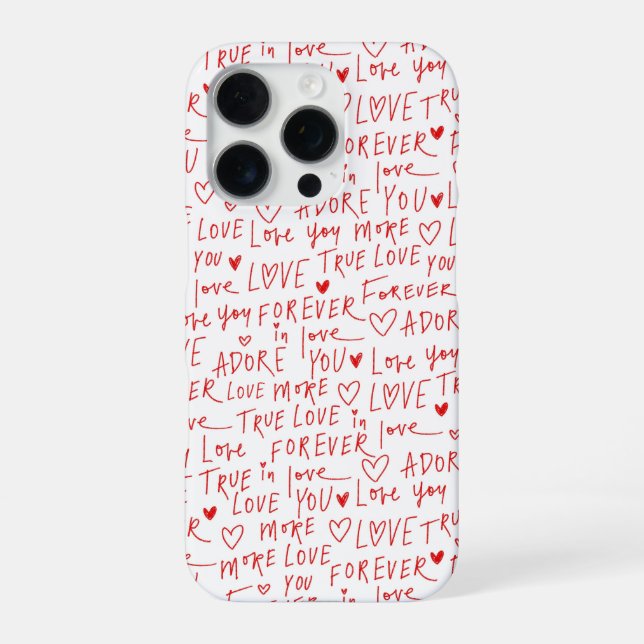 TRUE in love ADORE
YOU Love you
MORE LOVE TRUE
FOREVER
in love
ADORE YOU LO
LOVE Love you MORE L
YOU LOVE TRUE LOVE YOU
love FOREVER FOREVER
ove you in love ADORE
VE ADORE YOU Love you
ER LOVE MORE LOVE
ove TRUE LOVE in love
y Love FOREVER ADORE
ET TRUE in love
LOVE YOU Love you
ER MORE LOVE TRUE
MORE LOVE FOREVER
YOU in love